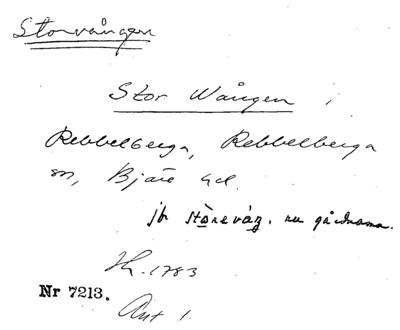 Storvången
Stor Wången i
Rebbelberga, Rebbelberga
sn, Bjäre hd.
jb störevåg. nu gårdnamn.
1783
Nr 7213.
Ant 1.